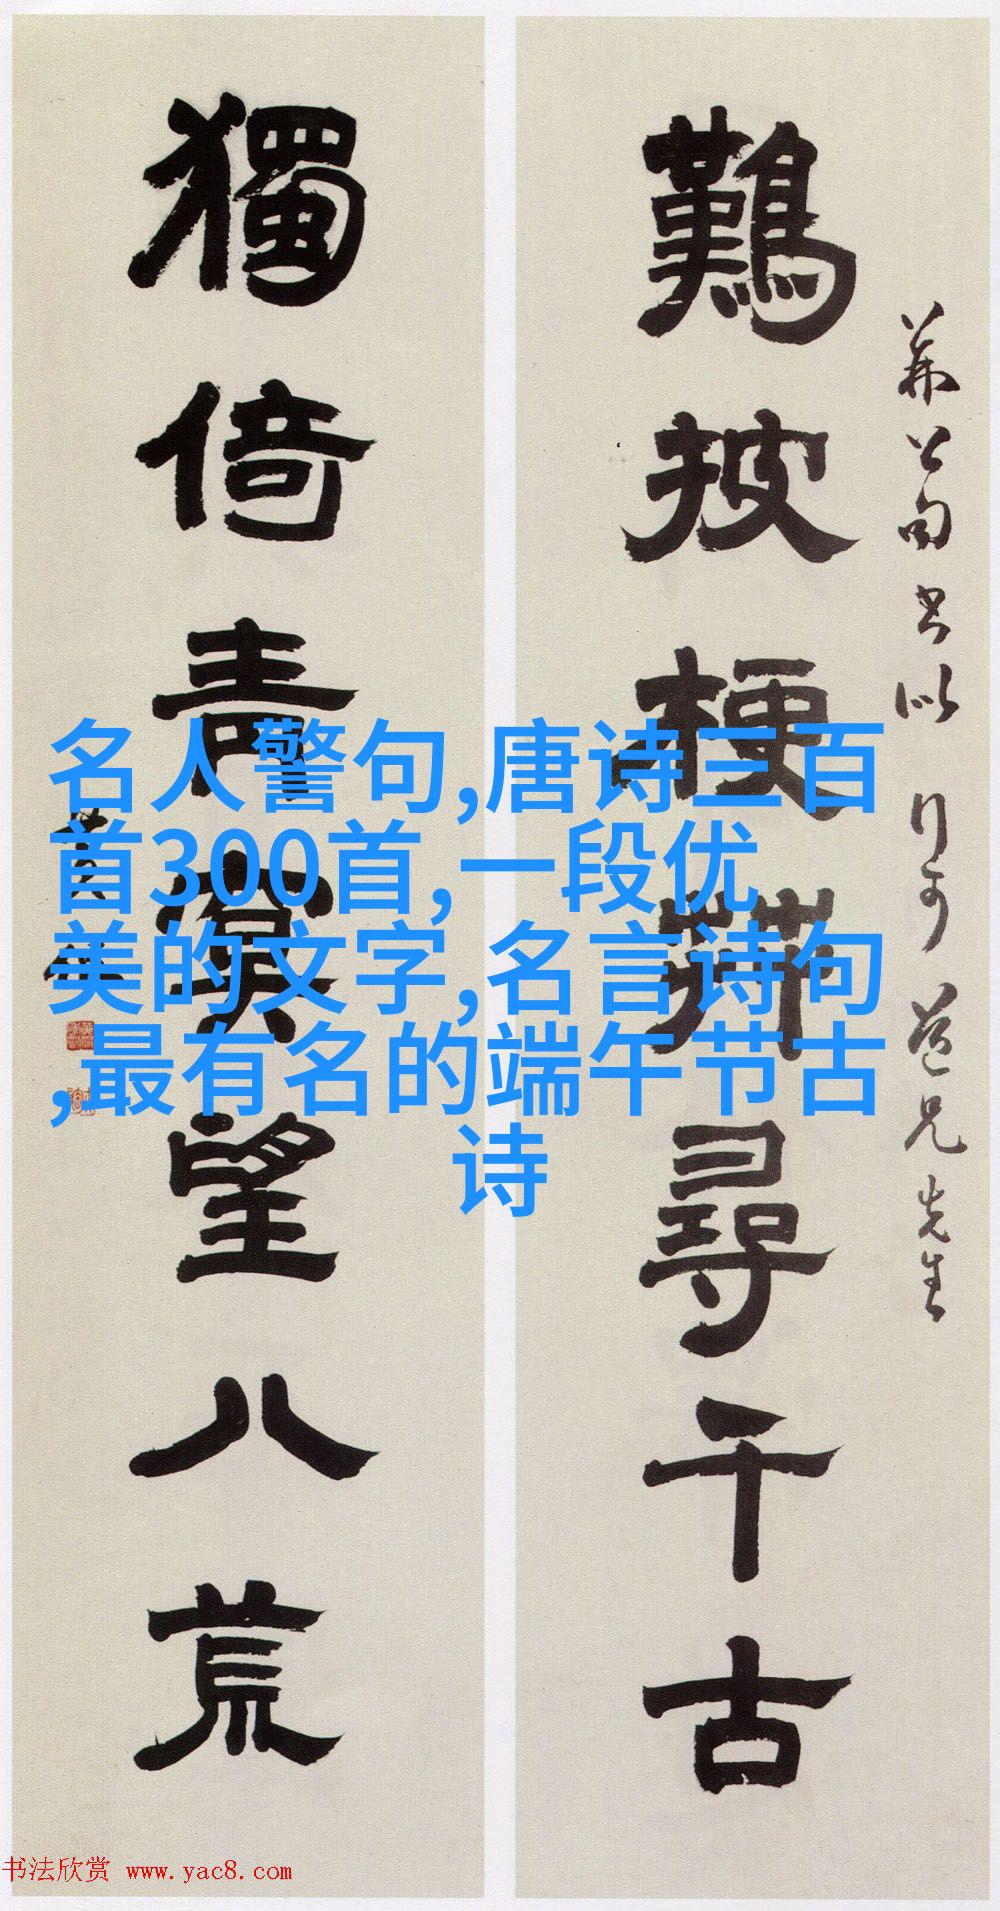 難披梗莽尋千古
獨倚青冥望八荒
名人警句,唐诗三百
首300首,一段优
美的文字,名言诗句
,最有名的端午节古
诗
书法欣赏 www.yac8.com